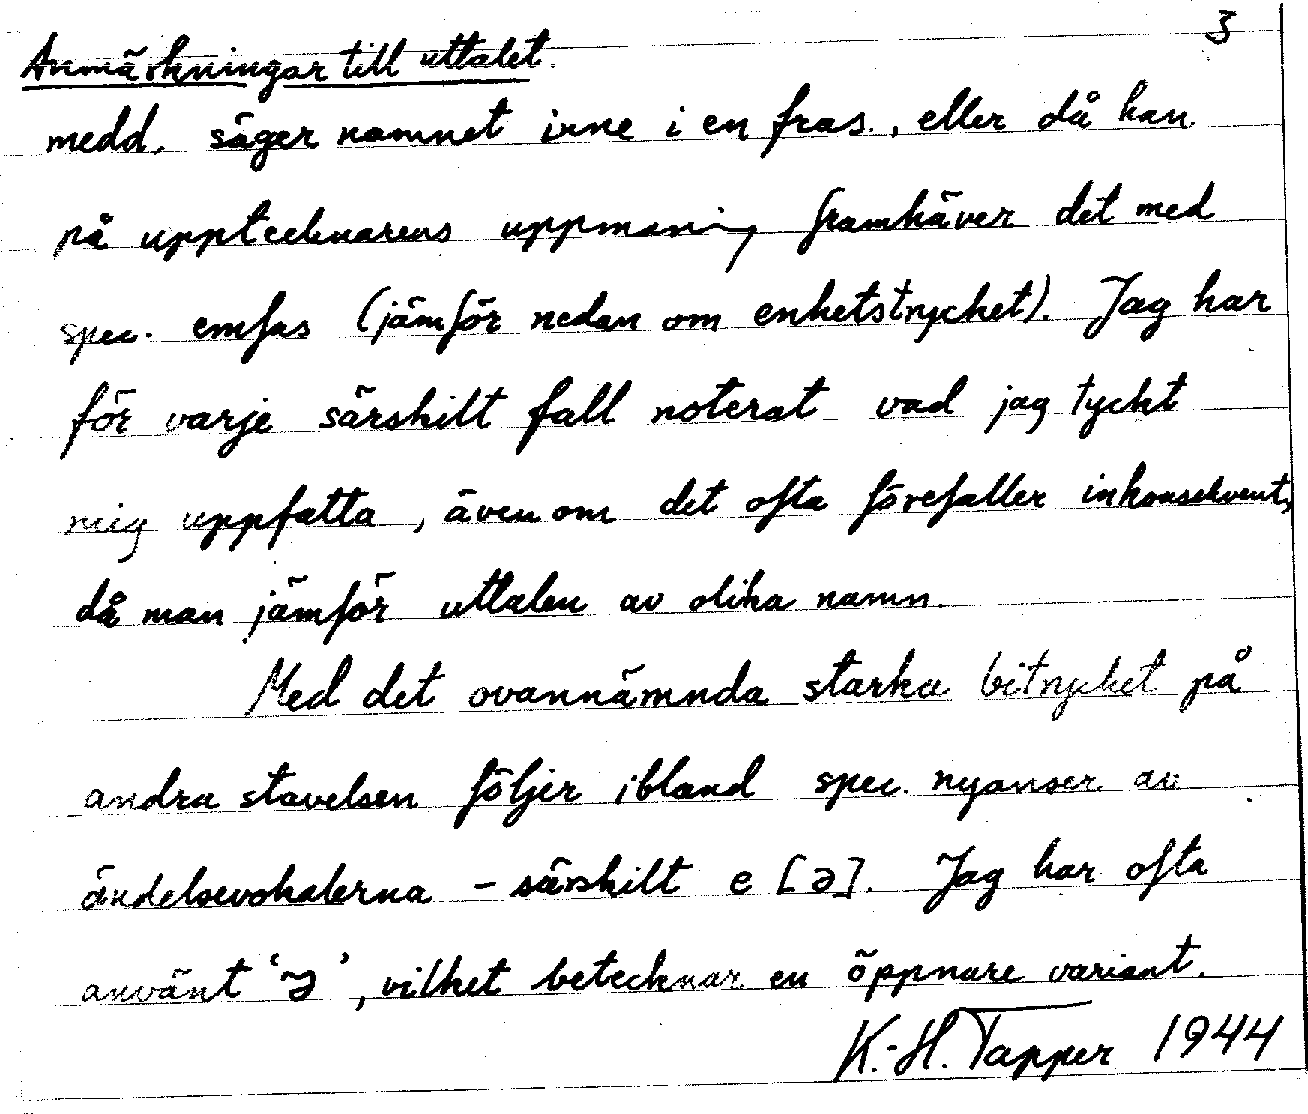 3
Anmärkningar till uttalet.
medd. säger namnet inne i en fras., eller då han
på upptecknarens uppmaning framhäver det med
spec. emfas (jämför nedan om enhetstrycket). Jag har
för varje särskilt fall noterat vad jag tyckt
mig uppfatta, även om det ofta förefaller inkonsekvent,
då man jämför uttalen av olika namn.
Med det ovannämnda starka bitrycket på
andra stavelsen följer ibland spec. nyanser av
ändelsevokalerna - särskilt e [ə]. Jag har ofta
använt 'ə̃', vilket betecknar en öppnare variant.
K.-H. Tapper 1944